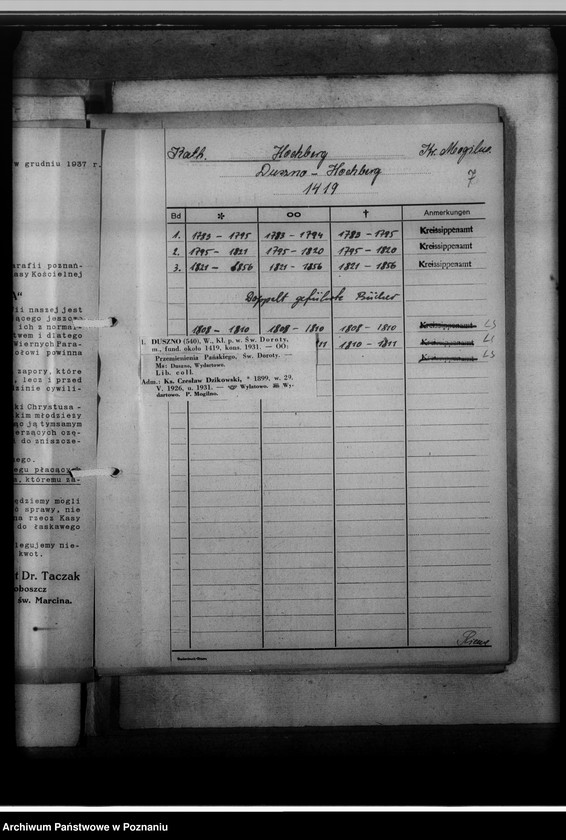 w grudniu 1937 r.
parafii poznań-
Kasy Kościelnej
A"
fii naszej jest
ich z normal-
twem i dlatego
wiernych Para-
powinna
zapory, które
, lecz i przed
cywili-
ki Chrystusa -
kim młodzieży
ąc ją tymsamym
erzących ozę-
do zniszcze-
nego.
egu płacący
a, któremu za-
ędziemy mogli
ó sprawy, nie
na rzecz Kasy
do łaskawego
legujemy nie-
kwot.
t Dr. Taczak
oboszcz
św. Marcina.
Kath. Hochberg Kr. Mogilno.
Duszno - Hochberg
1419
7
Bd * oo † Anmerkungen
1. 1783 - 1795 1783 - 1794 1783 - 1795 Kreissippenamt
2. 1795 - 1821 1795 - 1820 1795 - 1820 Kreissippenamt
3. 1821 - 1856 1821 - 1856 1821 - 1856 Kreissippenamt
Doppelt geführte Bücher
1808 - 1810 1808 - 1810 1808 - 1810 Kreissippenamt LS
11 1810 - 1811 Kreissippenamt LS
Kreissippenamt LS
1. DUSZNO (540), W., Kl. p. w. Św. Doroty,
m., fund. około 1419, kons. 1931. — OO:
Przemienienia Pańskiego, Św. Doroty. —
Ms: Duszno, Wydartowo.
Lib. coll.
Adm.: Ks. Czesław Dzikowski, * 1899, w. 29,
V. 1926, u. 1931. — Wylatowo. Wy-
dartowo. P. Mogilno.
Archiwum Państwowe w Poznaniu